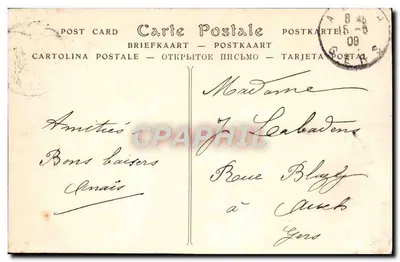 POST CARD Carte Postale POSTKARTE
BRIEFKAART — POSTKAART
CARTOLINA POSTALE — ОТКРЫТОЕ ПИСЬМО — TARJETA POSTAL
8
15-5
09
GERS
CPARHIL
Amitiés
Bons baisers
Anaïs
Madame
J Labadens
Rue Blazy
à Auch
Gers